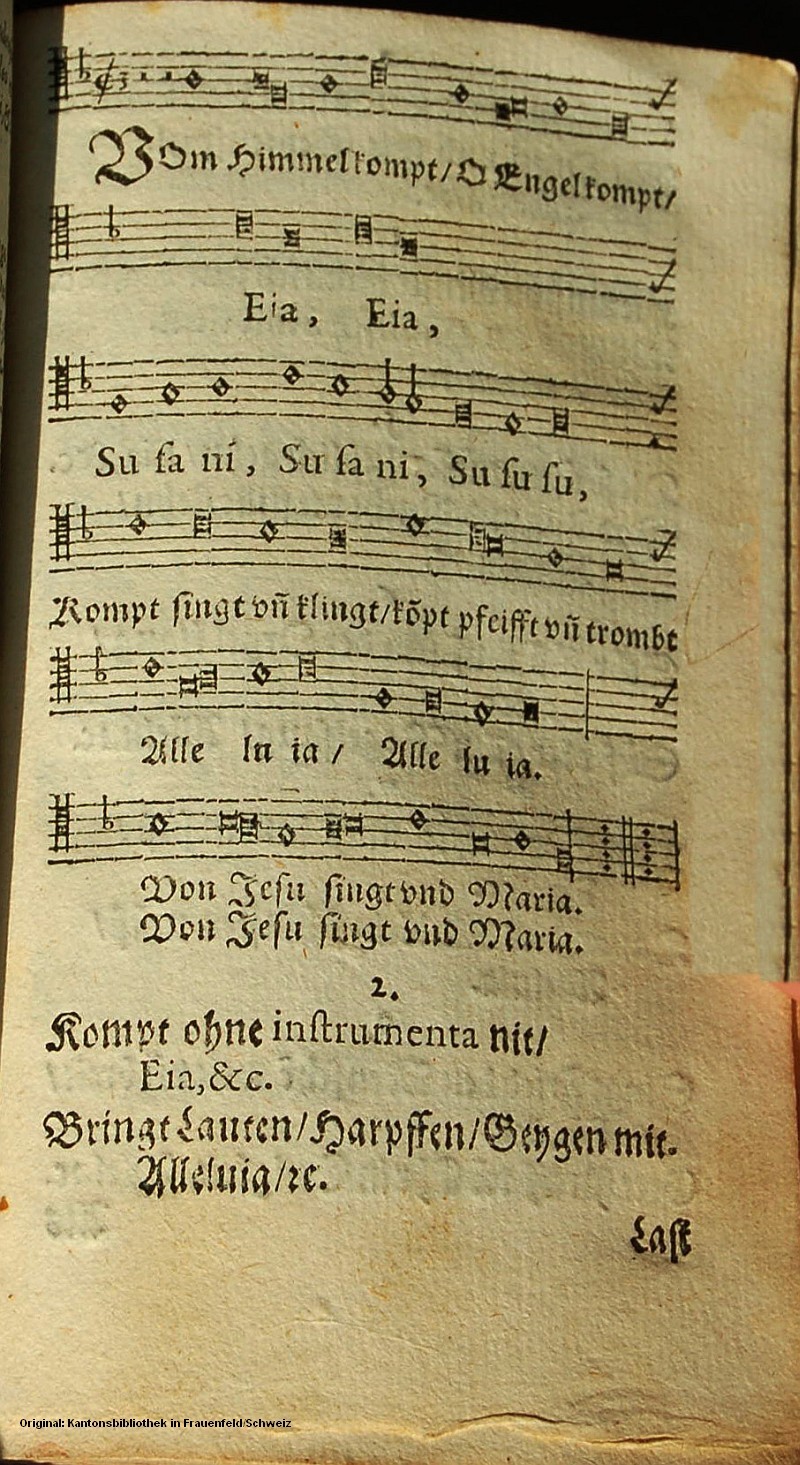 VOm Himmel kompt/ O Engel kompt/
Eia, Eia,
Su ſa ni, Su ſa ni, Su ſu ſu,
Kompt ſingt vñ klingt/ kõpt pfeifft vñ trombt
Alle lu ia / Alle lu ia.
Von Jeſu ſingt vnd Maria.
Von Jeſu ſingt vnd Maria.
2.
Kompt ohne inſtrumenta nit/
Eia, &c.
Bringt Lauten/ Harpffen/ Geygen mit.
Alleluia/ ꝛc.
Laſt
Original: Kantonsbibliothek in Frauenfeld/Schweiz